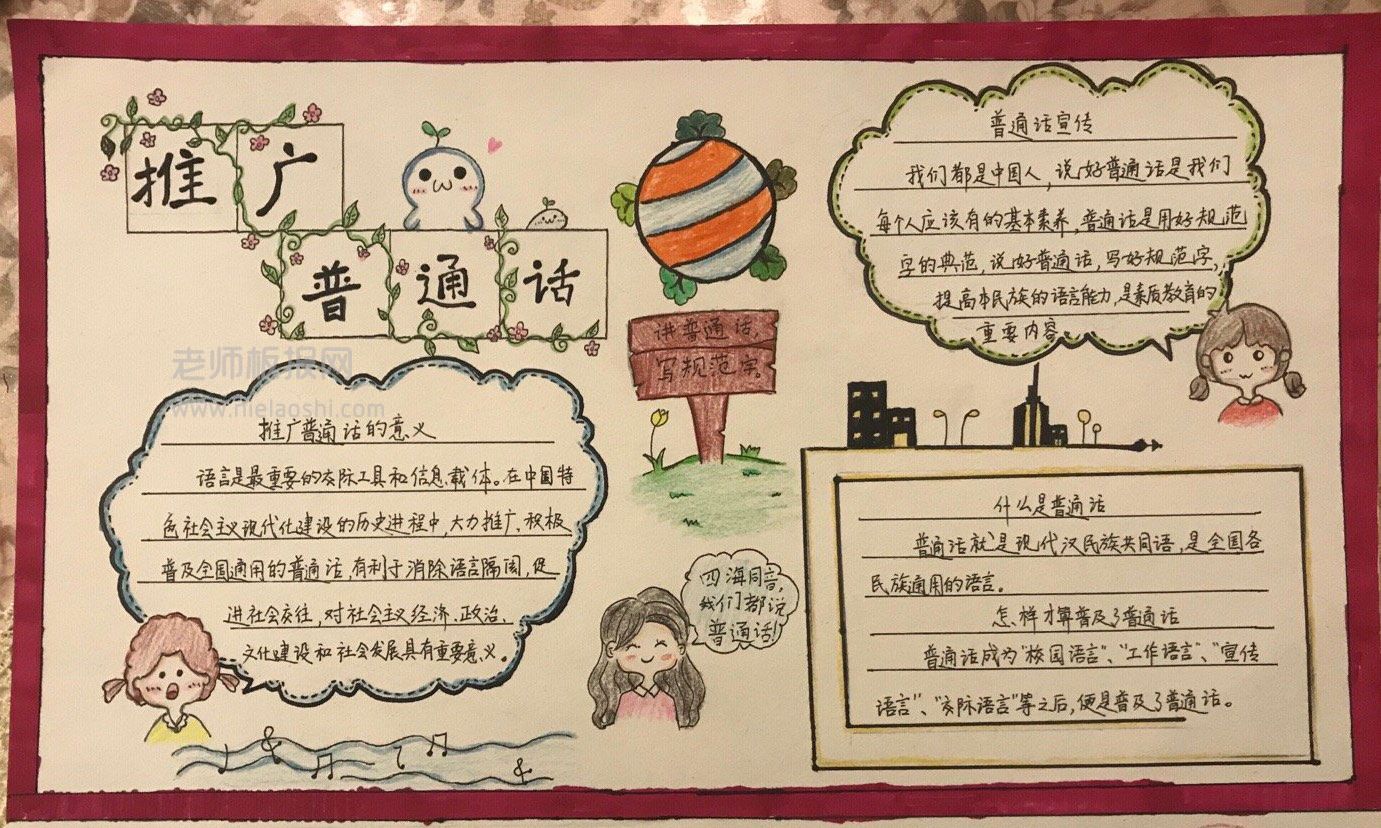 推广
普通话
老师板报网
www.nielaoshi.com
推广普通话的意义
语言是最重要的交际工具和信息载体。在中国特
色社会主义现代化建设的历史进程中,大力推广、积极
普及全国通用的普通话,有利于消除语言隔阂,促
进社会交往,对社会主义经济、政治、
文化建设和社会发展具有重要意义。
讲普通话,
写规范字。
四海同音,
我们都说
普通话!
普通话宣传
我们都是中国人,说好普通话是我们
每个人应该有的基本素养,普通话是用好规范
字的典范,说好普通话,写好规范字,
提高本民族的语言能力,是素质教育的
重要内容。
什么是普通话
普通话就是现代汉民族共同语,是全国各
民族通用的语言。
怎样才算普及了普通话
普通话成为"校园语言"、"工作语言"、"宣传
语言"、"交际语言"等之后,便是普及了普通话。